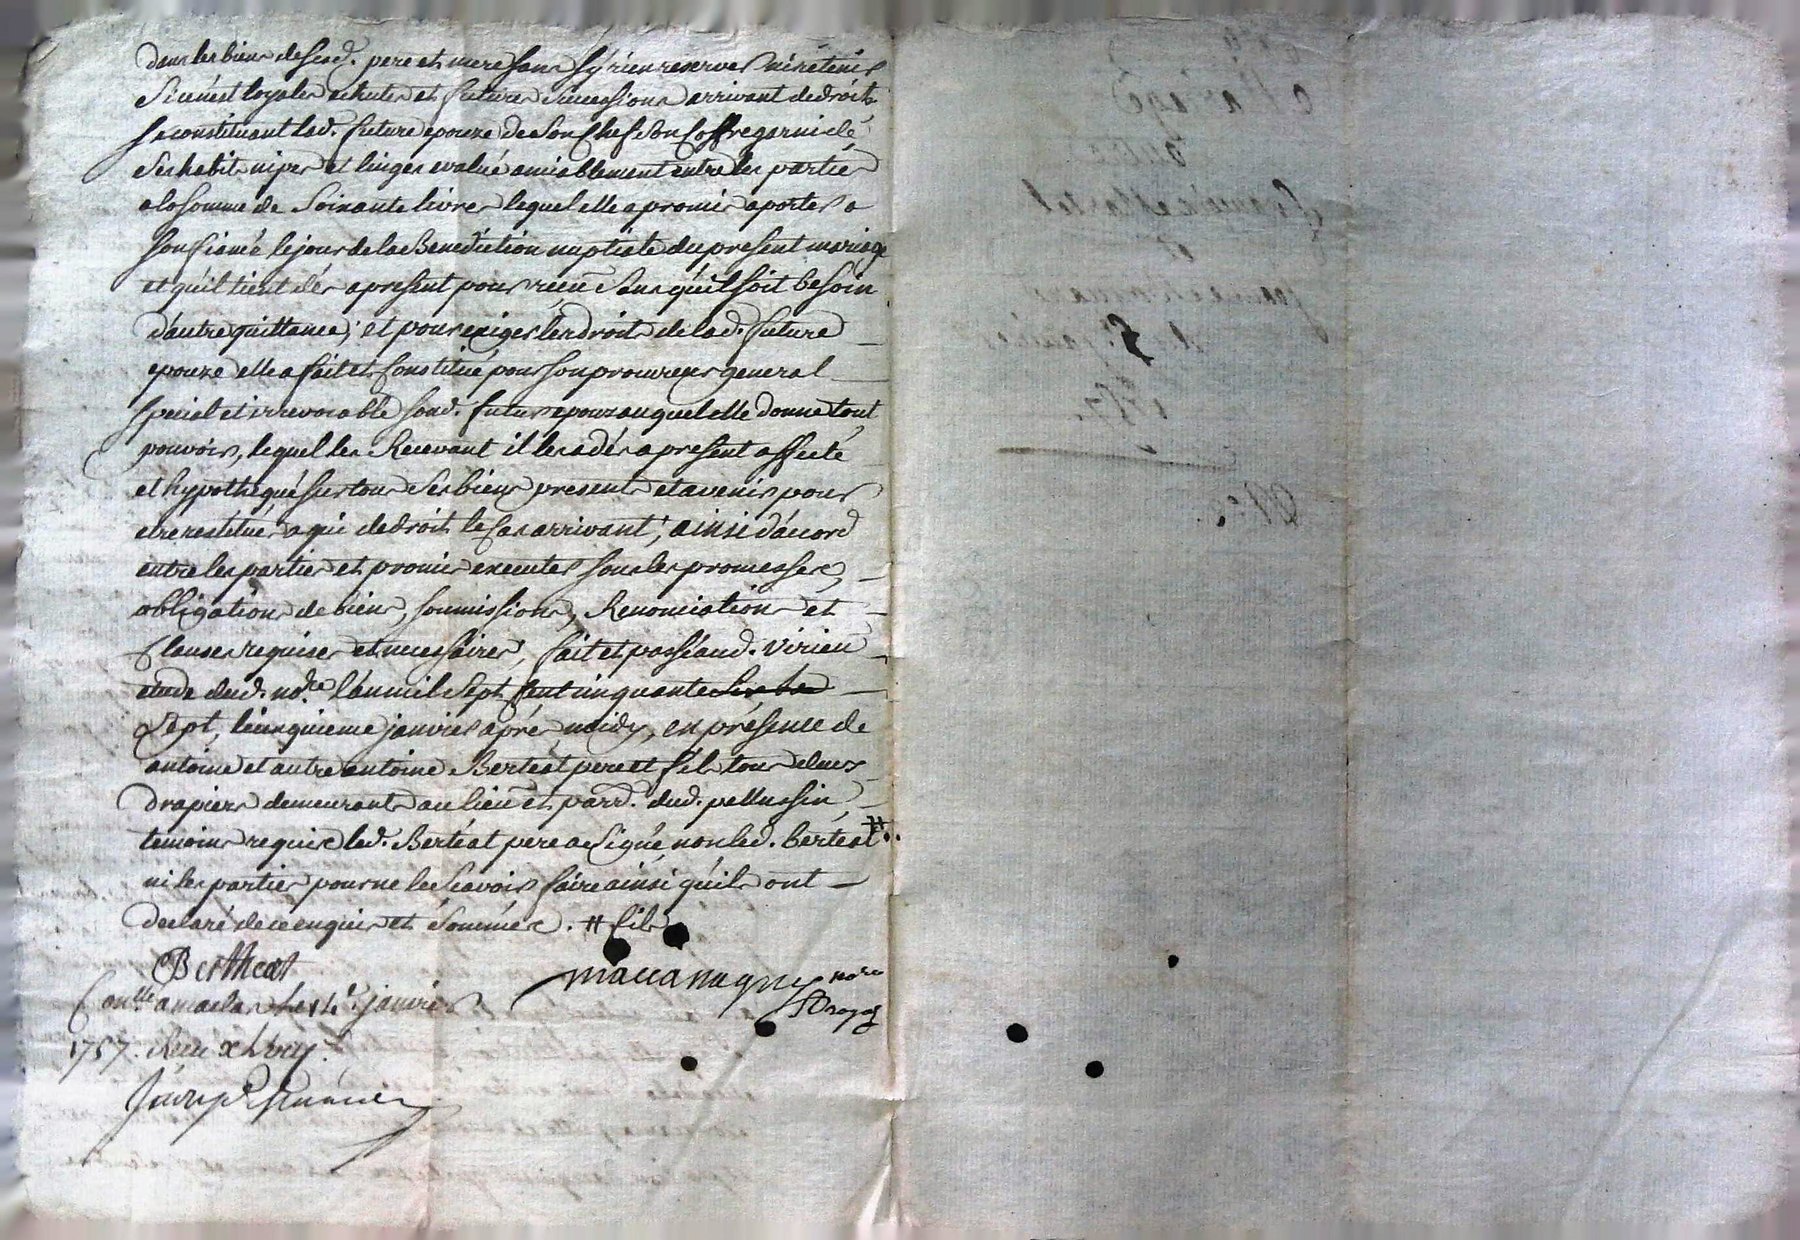 dans les biens de sesd. pere et mere sans sÿ rien reserver ni retenir
si ce n'est loyales echutes et futures successions arrivant de droit
se constituant lad. future epouze de son chef son coffre garni de
ses habit nipes et linges evalué amiablement entre les parties
a la somme de soixante livres lequel elle a promis aporter a
son fiancé le jour de la Benediction nuptiale du present mariage
et qu'il tient dés a present pour reçu sans qu'il soit besoin
d'autre quittance; et pour exiger les droits de lad. future
epouze elle a fait et constitué pour son procureur general
special et irrevocable sond. futur epoux auquel elle donne tout
pouvoir, lequel les Recevant il les a dés a present affecté
et hypothequé sur tous ses biens presents et avenir pour
etre restitués a qui de droit le cas arrivant; ainsi d'accord
entre les parties et promis executer sous les promesses,
obligations de biens, soumissions, Renonciations et
clauses requises et necessaires, fait et passé aud. virieu
etude dud. no.re l'an mil sept cent cinquante six le
sept, le cinquieme janvier aprés midy, en présence de
antoine et autre antoine Berteat pere et fils tous deux
drapiers demeurants au lieu et parr. dud. pellussin
temoins requis led. Berteat pere a signé non led. berteat #
ni les parties pour ne le sçavoir faire ainsi qu'ils ont
declaré de ce enquis et sommés. # fils
Bertheat
maccanagny no.re
Royal
Con.lle a maclas le 14.e janvier
1757. Reçu
Mariage
entre
françois
et
jeanne
du 5.e janvier
1757